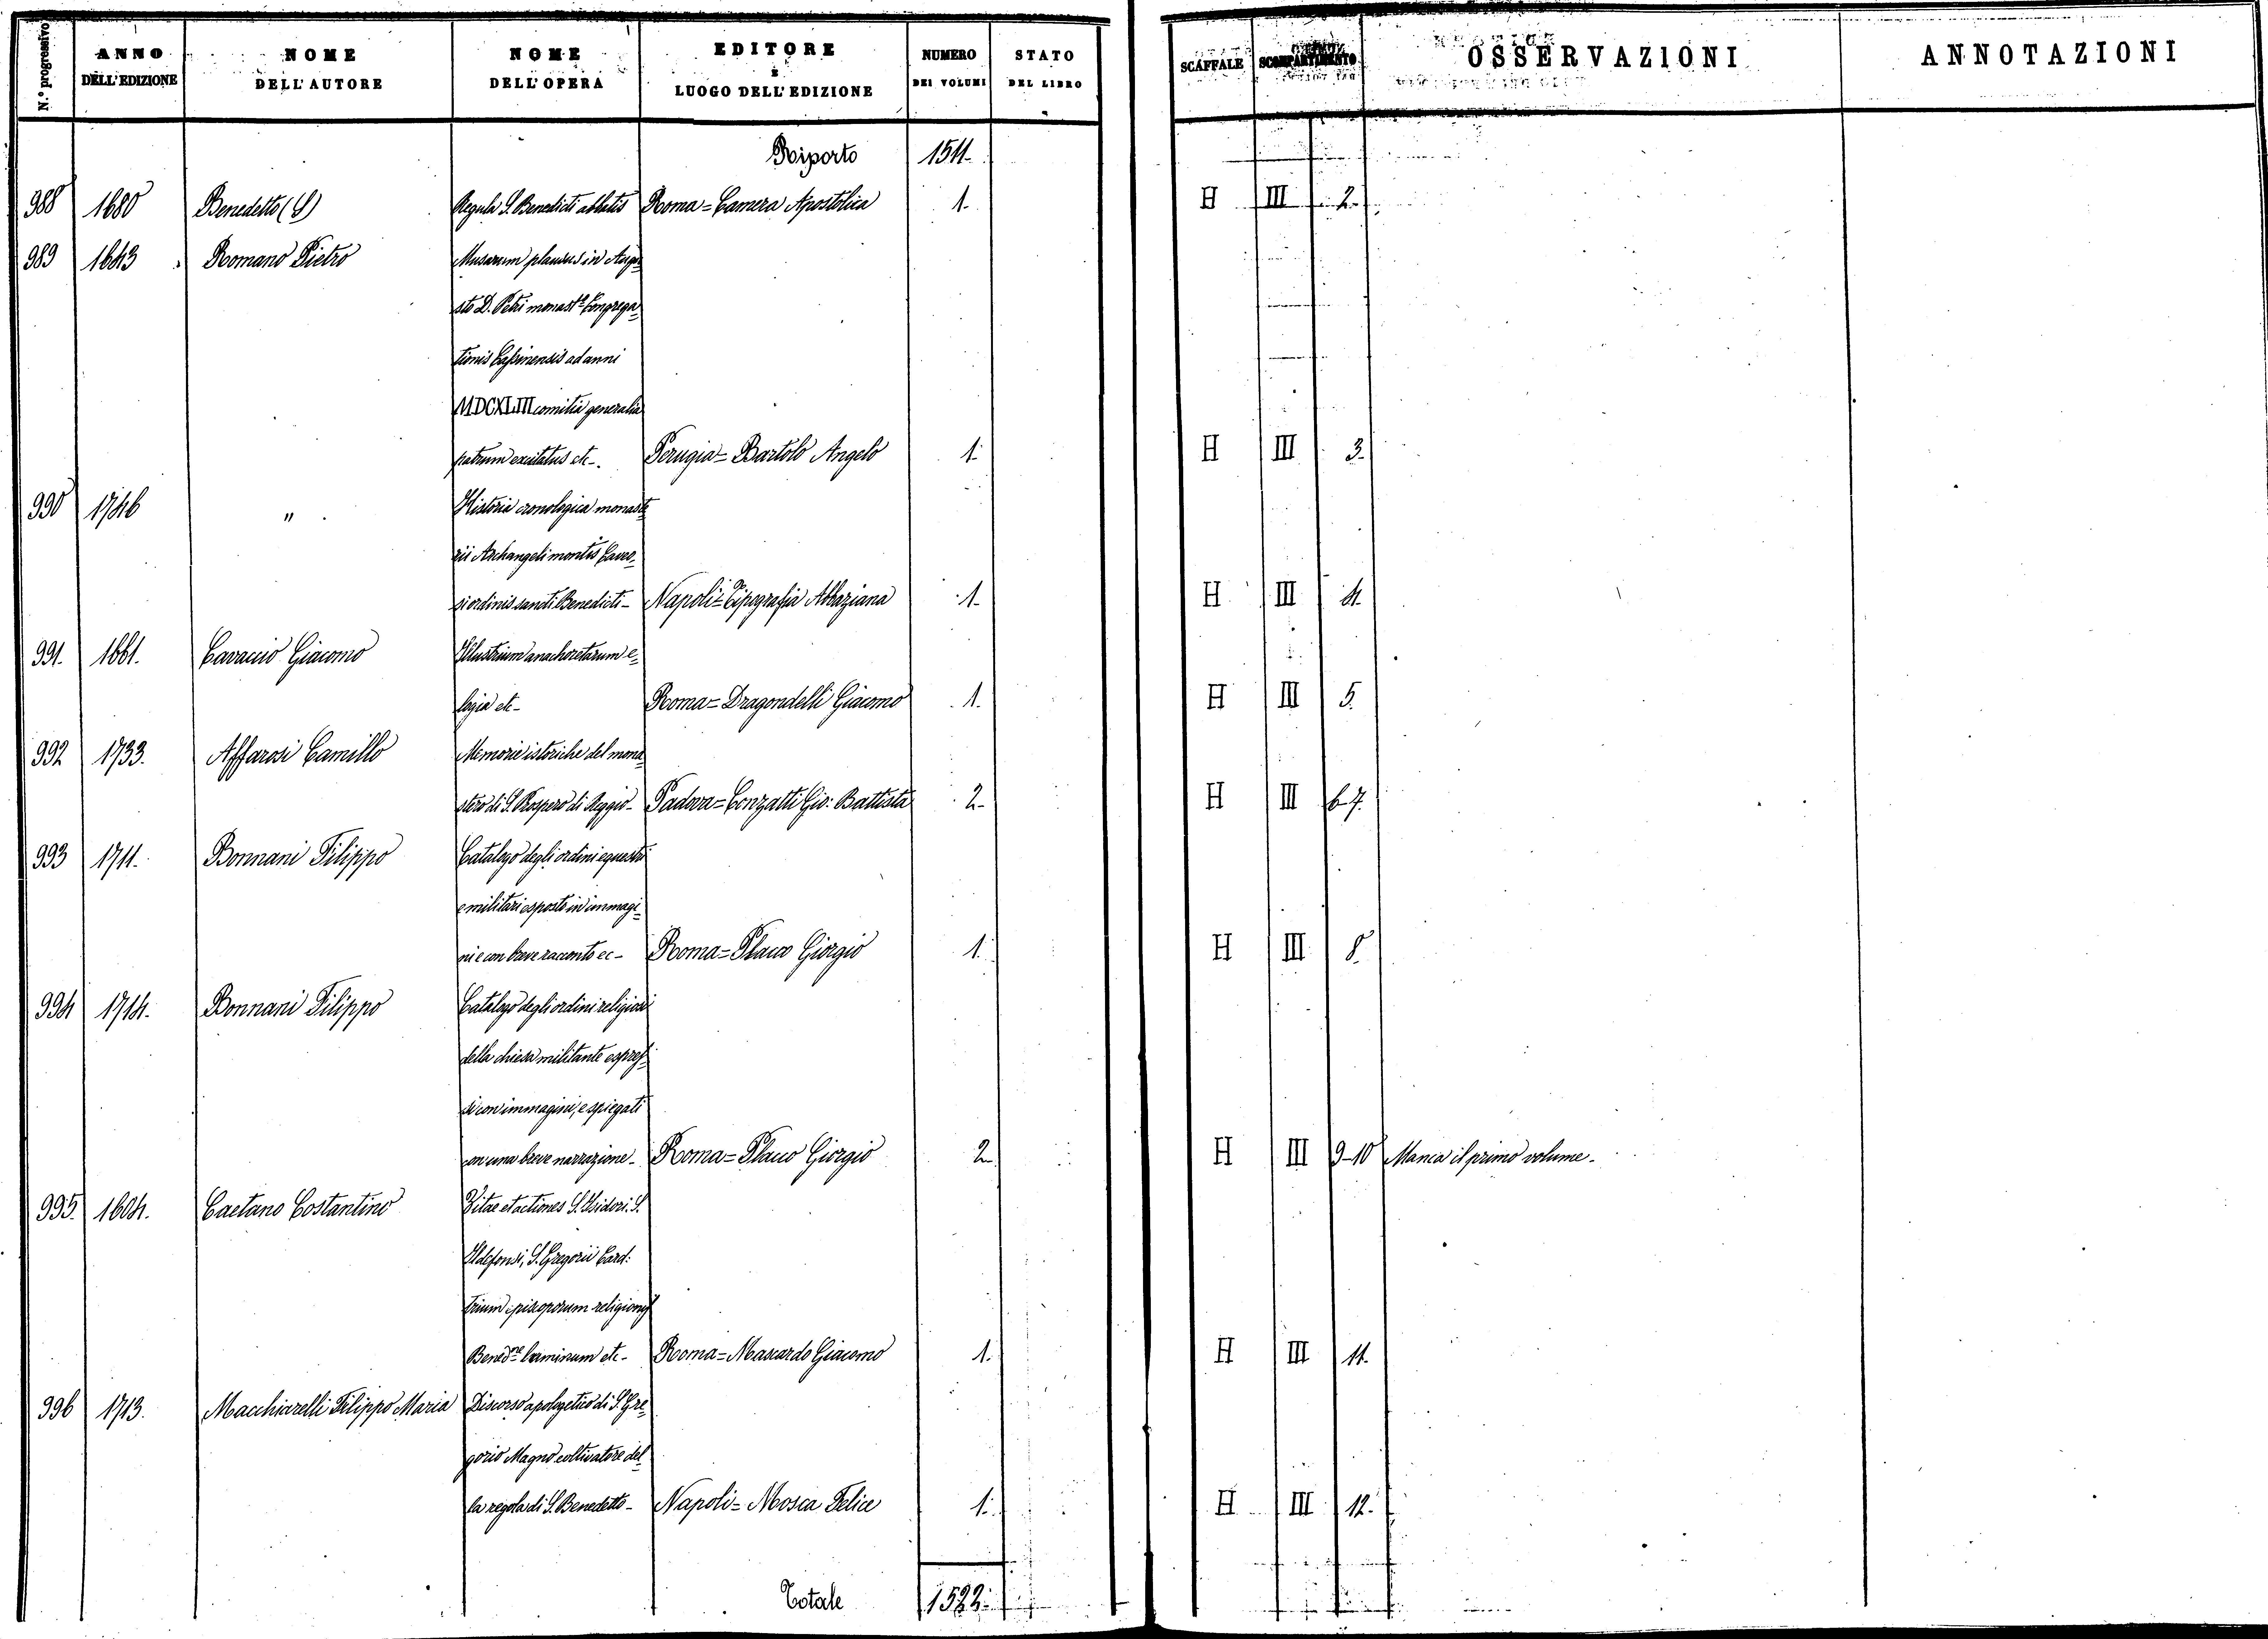 N.º progressivo ANNO DELL'EDIZIONE NOME DELL'AUTORE NOME DELL'OPERA EDITORE E LUOGO DELL'EDIZIONE NUMERO DEI VOLUMI STATO DEL LIBRO SCAFFALE SCOMPARTIMENTO OSSERVAZIONI ANNOTAZIONI
Riporto 1511.
988 1680 Benedetto (S) Regula S. Benedicti abbatis Roma = Camera Apostolica 1. H III 2.
989 1643 Romano Pietro Musarum plausus in Augu=
sto D. Petri monast.º Congrega=
tionis Cassinensis ad anni
MDCXLIII comitia generalia
patrum excitatus etc-. Perugia = Bartolo Angelo 1. H III 3.
990 1746 " Historia cronologica monaste
rii Archangeli montis Caveo=
si ordinis sancti Benedicti- Napoli = Tipografia Abbaziana 1. H III 4.
991. 1661. Cavaccio Giacomo Illustrium anachoretarum e=
logia etc- Roma = Dragondelli Giacomo 1. H III 5.
992 1733. Affarosi Camillo Memorie istoriche del mona=
stero di S. Prospero di Reggio- Padova = Conzatti Gio: Battista 2. H III 6-7.
993 1711. Bonnani Filippo Catalogo degli ordini equestri
e militari esposto in immagi=
ni e con breve racconto ec- Roma = Placo Giorgio 1. H III 8.
994 1714. Bonnani Filippo Catalogo degli ordini religiosi
della chiesa militante espres=
si con immagini, e spiegati
con una breve narrazione- Roma = Placo Giorgio 2. H III 9-10 Manca il primo volume.
995. 1604. Caetano Costantino Vitae et actiones S. Isidori. S.
Ildefonsi, S. Gregorii Card:
trium episcoporum religionis
Bened.ne luminum etc- Roma = Mascardo Giacomo 1. H III 11.
996 1713. Macchiarelli Filippo Maria Discorso apologetico di S. Gre=
gorio Magno coltivatore del=
la regola di S. Benedetto- Napoli = Mosca Felice 1. H III 12.
Totale 1522.